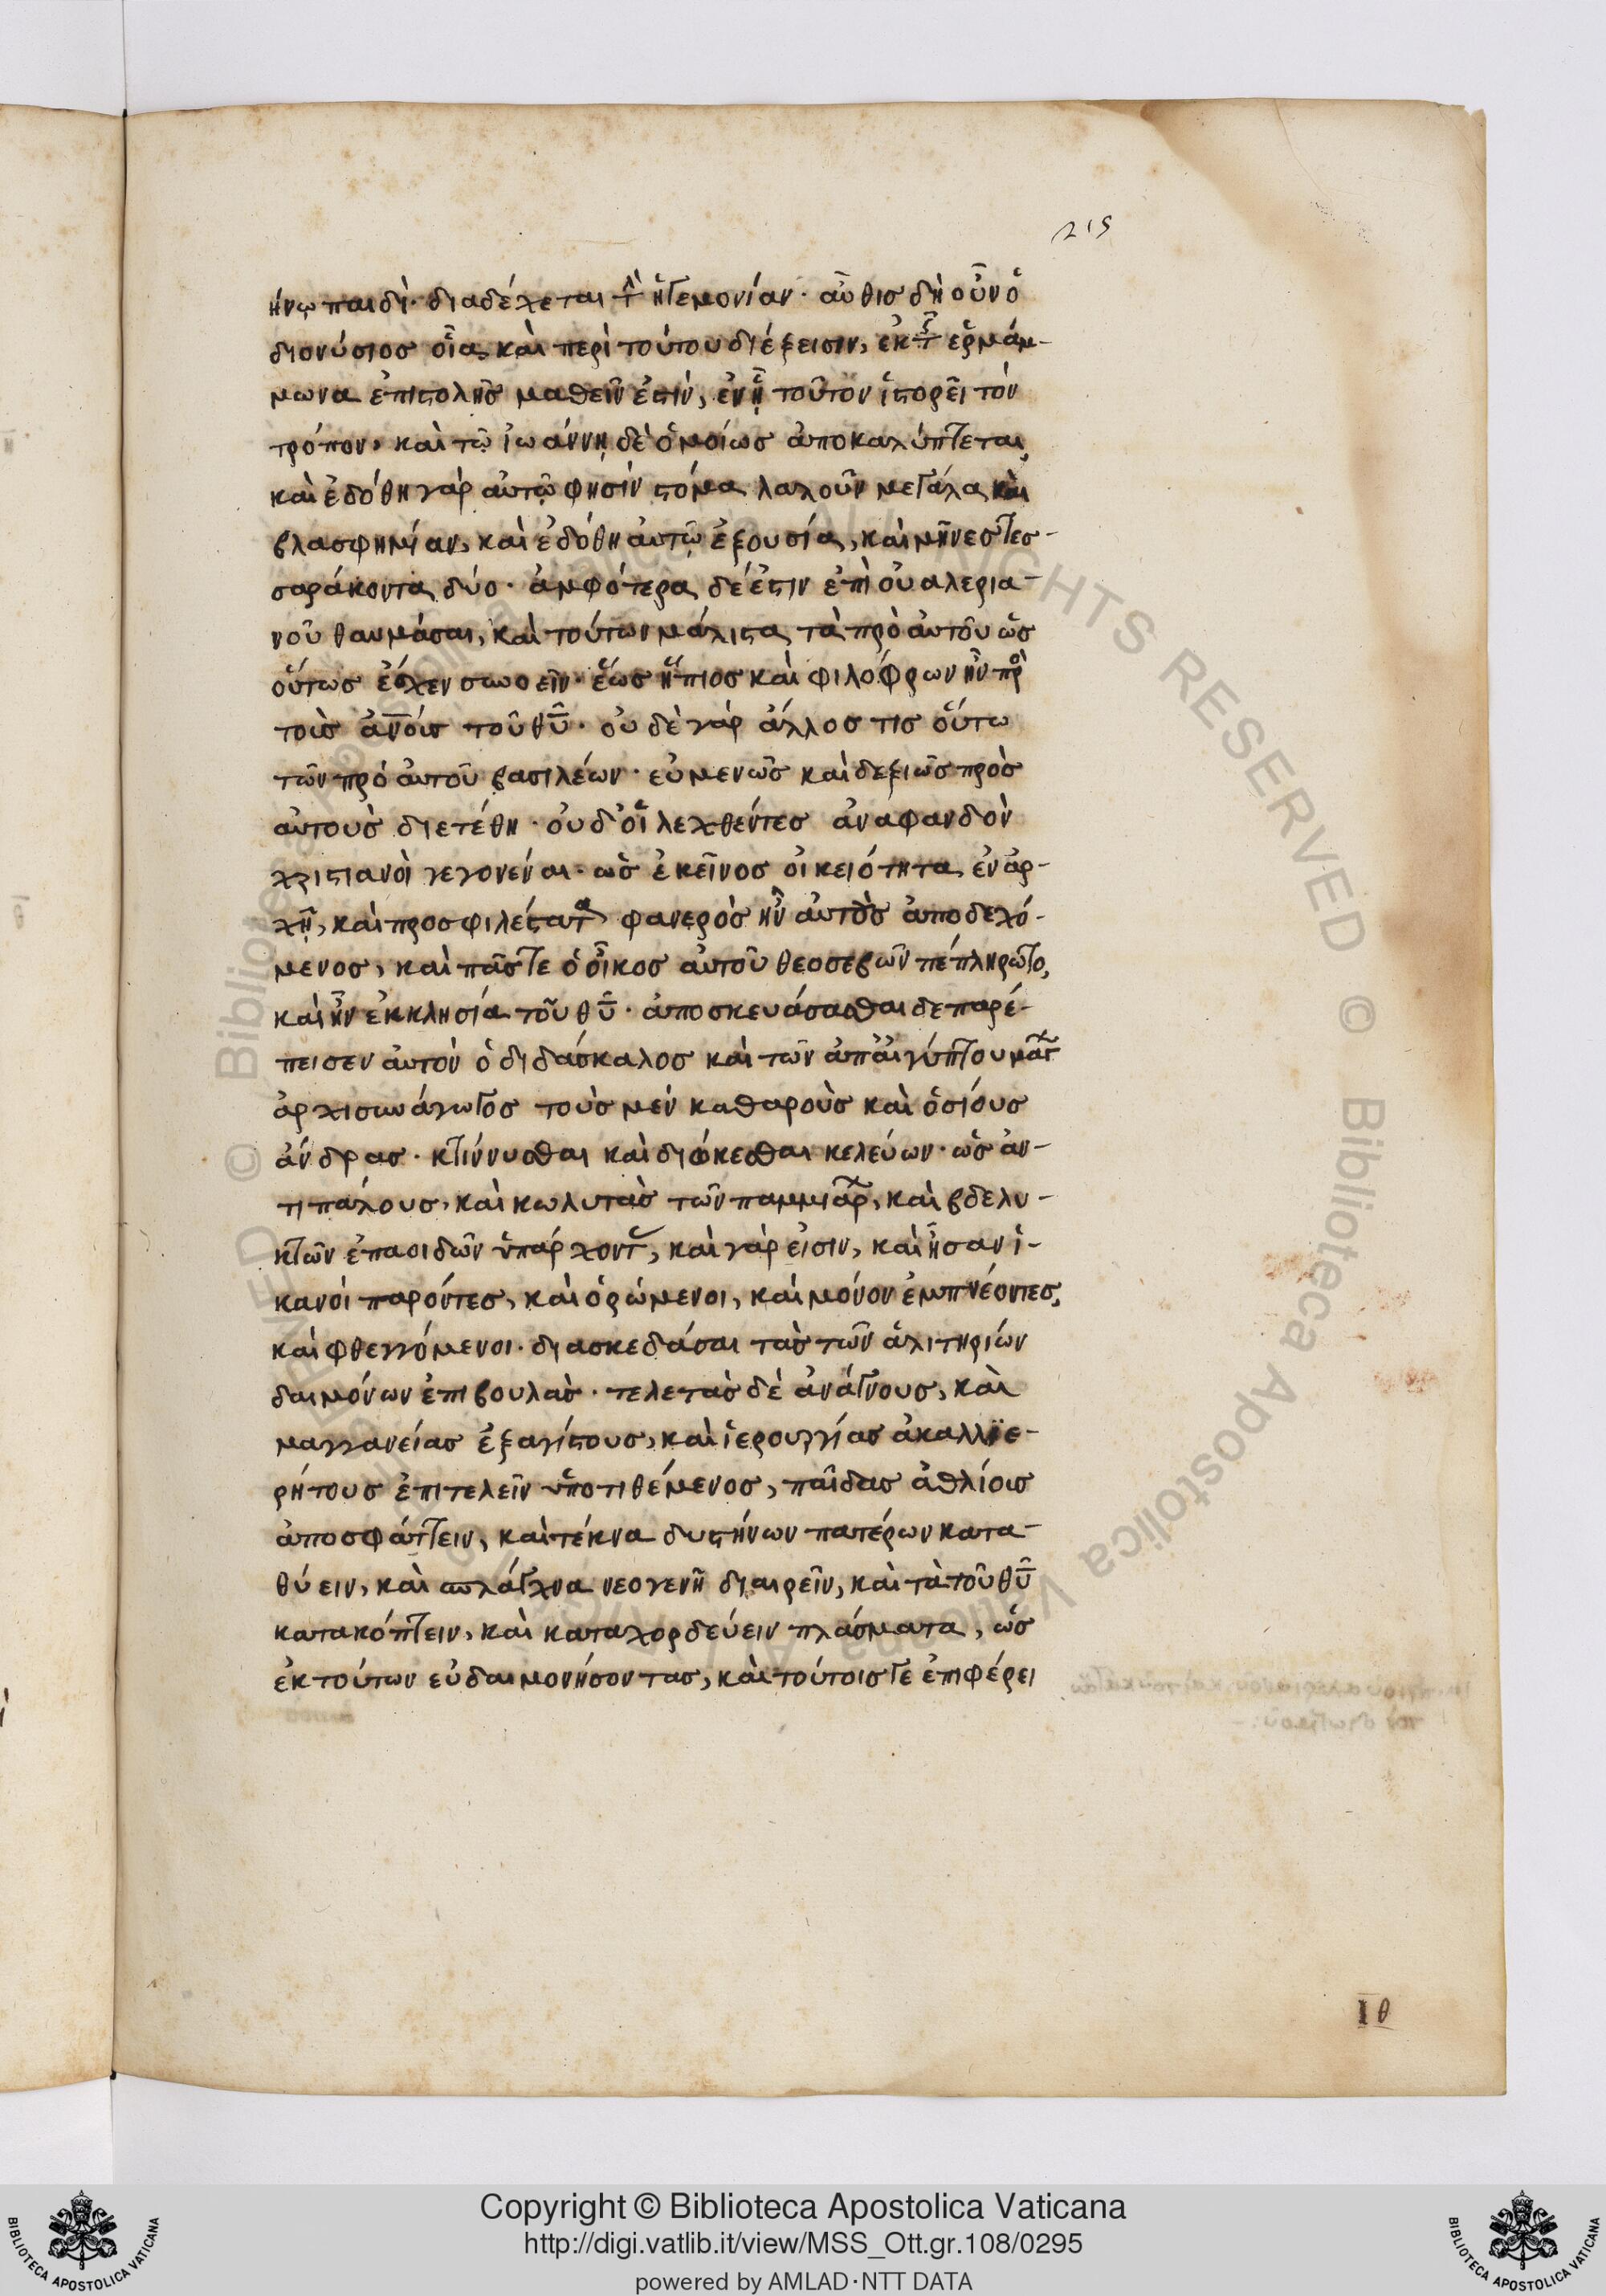 215
ήνῳ παιδὶ· διαδέχεται τ̀ ἡγεμονίαν· αὖθις δὴ οὖν ὁ
διονύσιος οἷα καὶ περὶ τούτου διέξεισιν, ἐκ τ͂ ἑρμάμ-
μωνα ἐπιστολῆς μαθεῖν ἐστίν, ἐν ᾗ τοῦτον ἱστορεῖ τὸν
τρόπον, καὶ τῷ ἰωάννῃ δὲ ὁμοίως ἀποκαλύπτεται,
καὶ ἐδόθη γὰρ αὐτῷ φησὶν στόμα λαλοῦν μεγάλα καὶ
βλασφημίαν, καὶ ἐδόθη αὐτῷ ἐξουσία, καὶ μῆνες τεσ-
σαράκοντα δύο· ἀμφότερα δέ ἐστιν ἐπὶ οὐαλερια-
νοῦ θαυμάσαι, καὶ τούτων μάλιστα τὰ πρὸ αὐτοῦ ὡς
οὕτως ἔσχεν συνοεῖν· ἕως ἤπιος καὶ φιλόφρων ἦν πρ̀
τοὺς ἀν̅ο̅υς τοῦ θ̅υ̅· οὐδὲ γὰρ ἄλλος τις οὕτω
τῶν πρὸ αὐτοῦ βασιλέων· εὐμενῶς καὶ δεξιῶς πρὸς
αὐτοὺς διετέθη· οὐδ' οἱ λεχθέντες ἀναφανδὸν
χριστιανοὶ γεγονέναι· ὡς ἐκεῖνος οἰκειότητα ἐν ἀρ-
χῇ, καὶ προσφιλέστατα φανερὸς ἦν αὐτὸς ἀποδεχό-
μενος, καὶ πᾶς τε ὁ οἶκος αὐτοῦ θεοσεβῶν πεπλήρωτο,
καὶ ἦν ἐκκλησία τοῦ θ̅υ̅· ἀποσκευάσασθαι δὲ παρέ-
πεισεν αὐτὸν ὁ διδάσκαλος καὶ τῶν ἀπ' αἰγύπτου μάγ
ἀρχισυνάγωγος τοὺς μὲν καθαροὺς καὶ ὁσίους
ἄνδρας· κτίννυσθαι καὶ διώκεσθαι κελεύων· ὡς ἀν-
τιπάλους, καὶ κωλυτὰς τῶν παμμιάρ, καὶ βδελυ-
κτῶν ἐπαοιδῶν ὑπάρχοντ, καὶ γάρ εἰσιν, καὶ ἦσαν ἱ-
κανοὶ παρόντες, καὶ ὁρώμενοι, καὶ μόνον ἐμπνέοντες,
καὶ φθεγγόμενοι· διασκεδάσαι τὰς τῶν ἀλιτηρίων
δαιμόνων ἐπιβουλάς· τελετὰς δὲ ἀνάγνους, καὶ
μαγγανείας ἐξαγίστους, καὶ ἱερουργίας ἀκαλλϊε-
ρήτους ἐπιτελεῖν ὑποτιθέμενος, παῖδας ἀθλίους
ἀποσφάττειν, καὶ τέκνα δυστήνων πατέρων κατα-
θύειν, καὶ σπλάγχνα νεογενῆ διαιρεῖν, καὶ τὰ τοῦ θ̅υ̅
κατακόπτειν, καὶ καταχορδεύειν πλάσματα, ὡς
ἐκ τούτων εὐδαιμονήσοντας, καὶ τούτοις γε ἐπιφέρει
ιθ
Copyright © Biblioteca Apostolica Vaticana
http://digi.vatlib.it/view/MSS_Ott.gr.108/0295
powered by AMLAD·NTT DATA
BIBLIOTECA APOSTOLICA VATICANA
BIBLIOTECA APOSTOLICA VATICANA